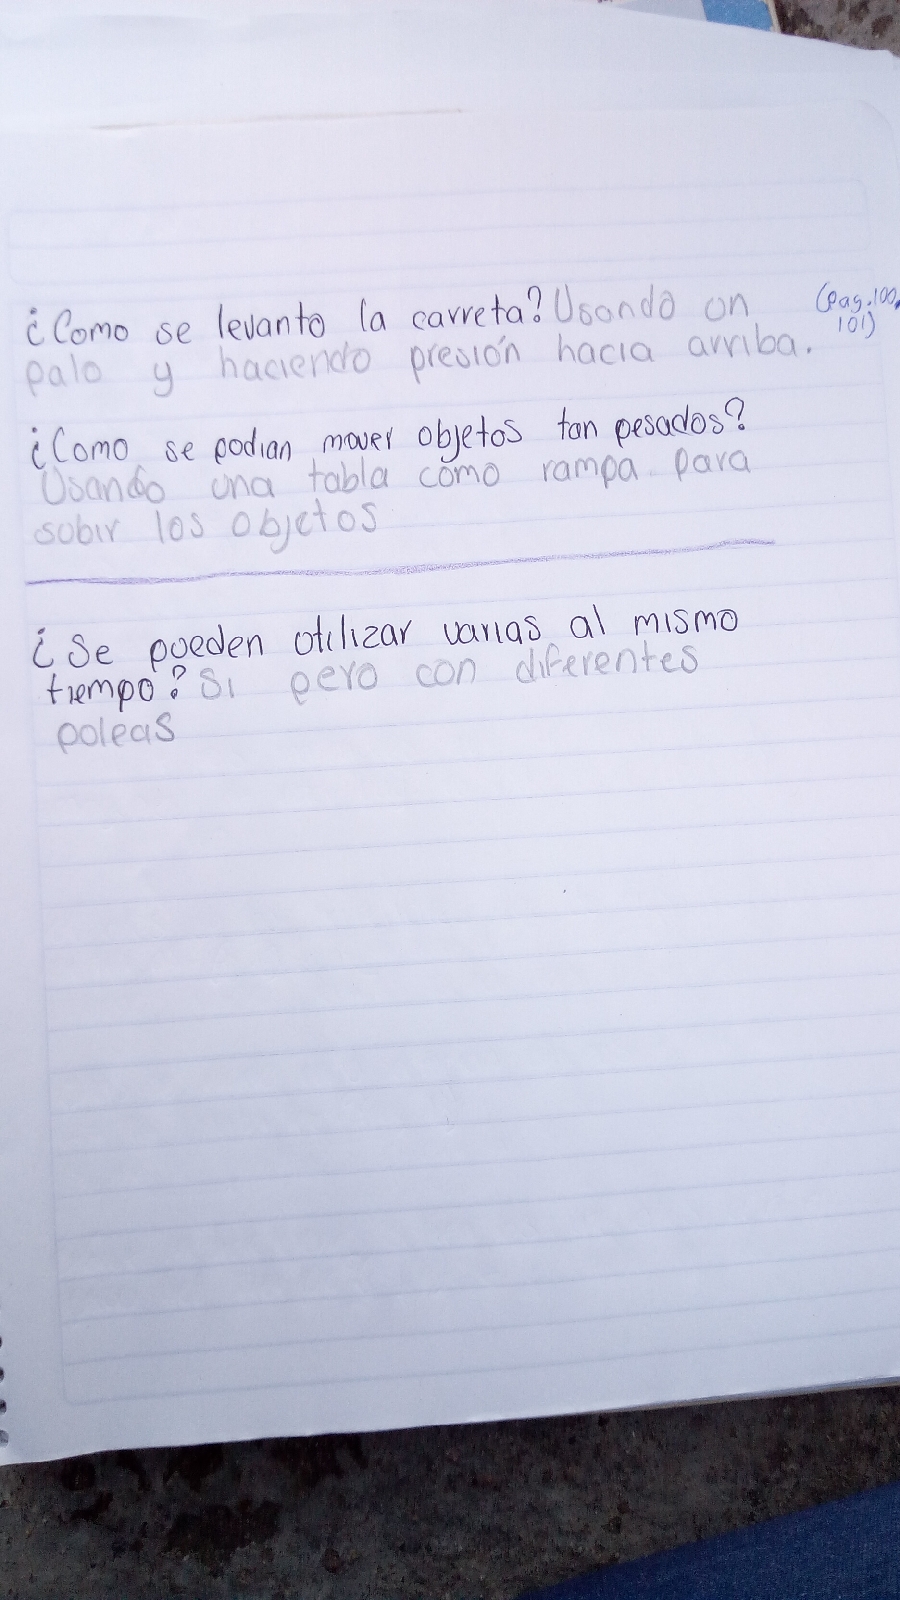 ¿Como se levanto la carreta? Usando un (pag.100,
101)
palo y haciendo presión hacia arriba.
¿Como se podian mover objetos tan pesados?
Usando una tabla como rampa para
subir los objetos
¿Se pueden utilizar varias al mismo
tiempo? Si pero con diferentes
poleas